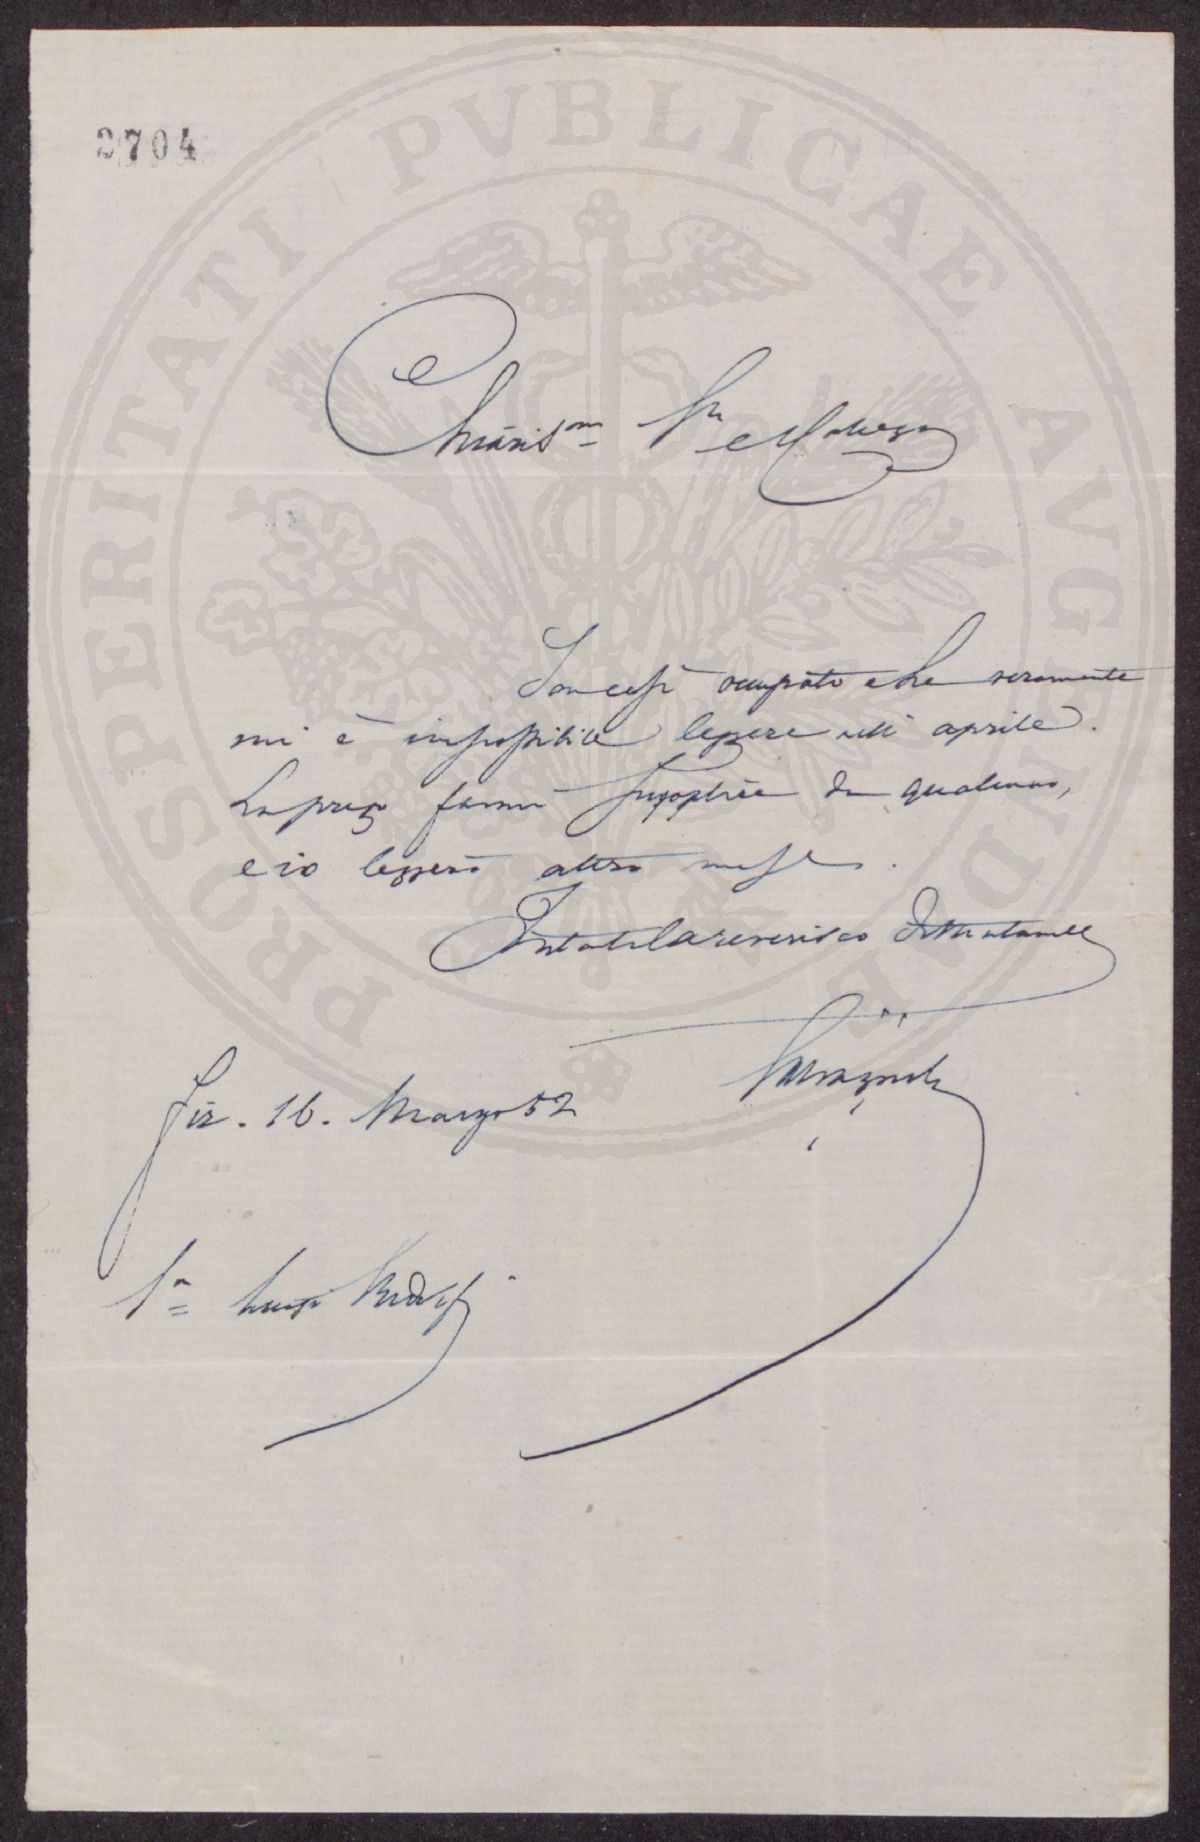 2704
PROSPERITATI PVBLICAE AVGENDAE
Chiaris.mo Sr. Collega
Son così occupato che veramente
mi è impossibile leggere nell' aprile.
La prego farmi supplire da qualcuno,
e io leggerò altro mese.
Intanto la reverisco distintamente
Fir. 16. Marzo 52
Sr. Luigi Ridolfi